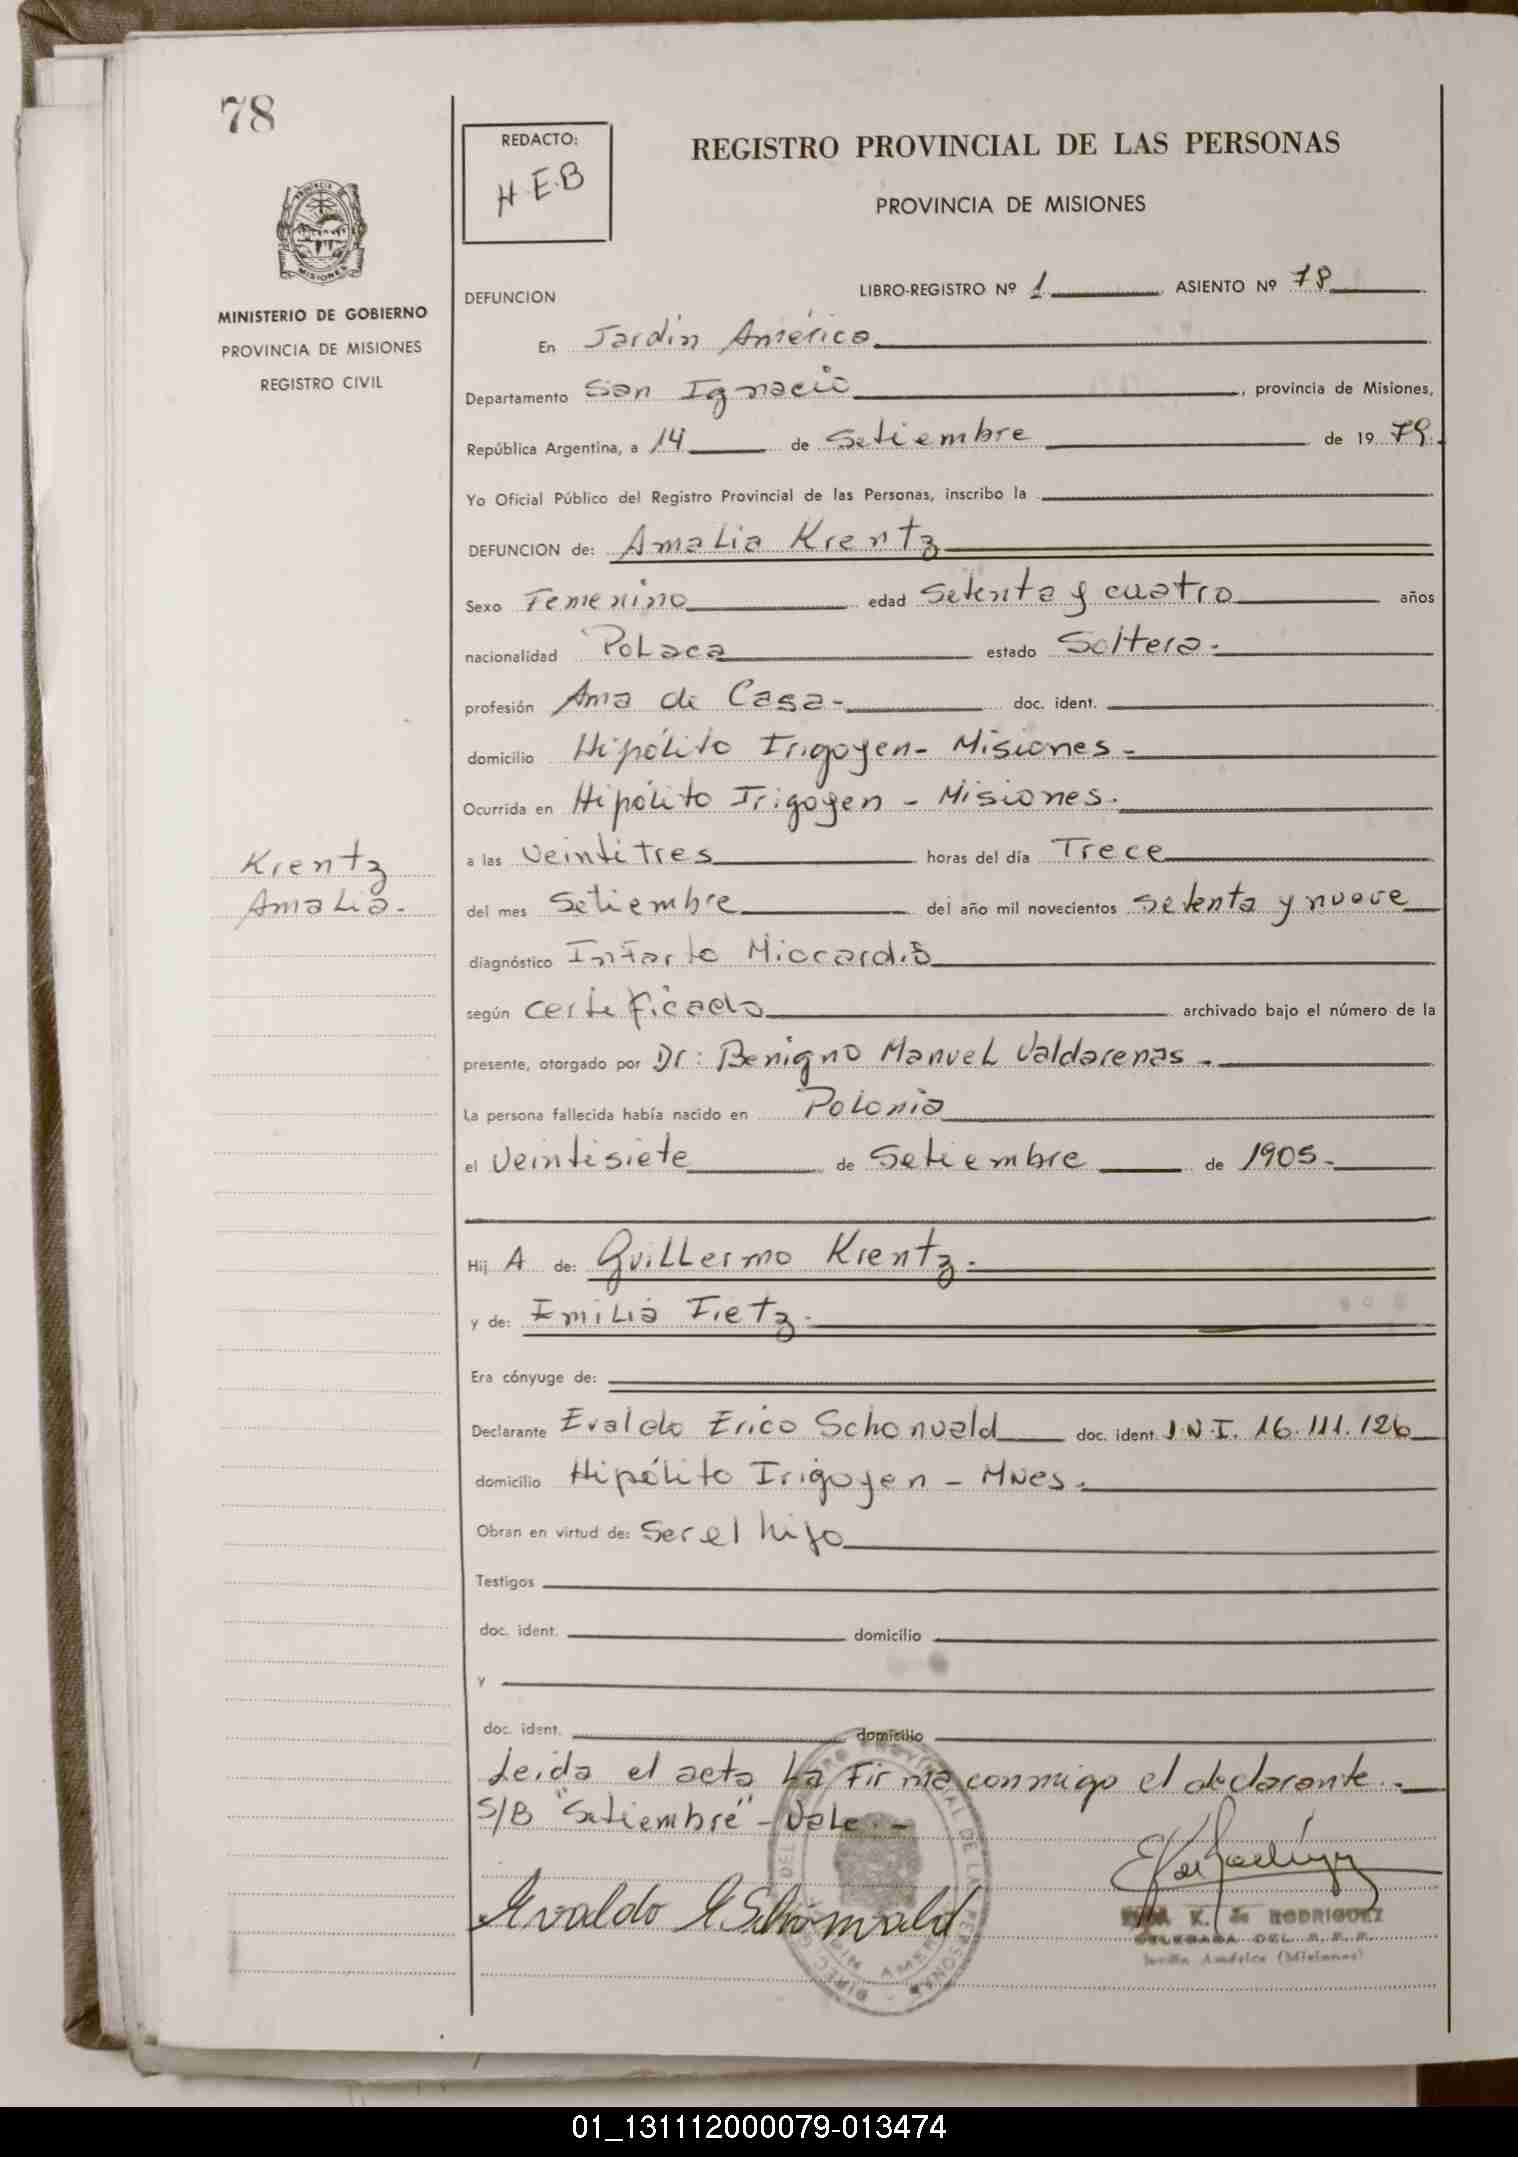 78
REDACTO:
H.E.B
REGISTRO PROVINCIAL DE LAS PERSONAS
PROVINCIA DE MISIONES
PROVINCIA DE
MISIONES
MINISTERIO DE GOBIERNO
PROVINCIA DE MISIONES
REGISTRO CIVIL
DEFUNCION LIBRO-REGISTRO Nº 1 ASIENTO Nº 78
En Jardín América
Departamento San Ignacio, provincia de Misiones,
República Argentina, a 14 de Setiembre de 1979.
Yo Oficial Público del Registro Provincial de las Personas, inscribo la
DEFUNCION de: Amalia Krentz
Sexo Femenino edad Setenta y cuatro años
nacionalidad Polaca estado Soltera.
profesión Ama de Casa- doc. ident.
domicilio Hipólito Irigoyen- Misiones-
Ocurrida en Hipólito Irigoyen - Misiones.
Krentz
Amalia.
a las veintitres horas del día Trece
del mes Setiembre del año mil novecientos Setenta y nueve
diagnóstico Infarto Miocardio
según certificado archivado bajo el número de la
presente, otorgado por Dr: Benigno Manuel Valdarenas-
La persona fallecida había nacido en Polonia
el Veintisiete de Setiembre de 1905-
Hij A de: Guillermo Krentz.
y de: Emilia Fietz.
Era cónyuge de:
Declarante Evaldo Erico Schonvald doc. ident. D.N.I. 16.111.126
domicilio Hipólito Irigoyen - Mnes.
Obran en virtud de: Ser el hijo
Testigos
doc. ident. domicilio
y
doc. ident. domicilio
Leida el acta La Firma conmigo el declarante.-
S/B "Setiembre"- Vale.-
Evaldo E. Schonwald
K. de RODRIGUEZ
DELEGADA DEL R. P. P.
Jardín América (Misiones)
01_131112000079-013474